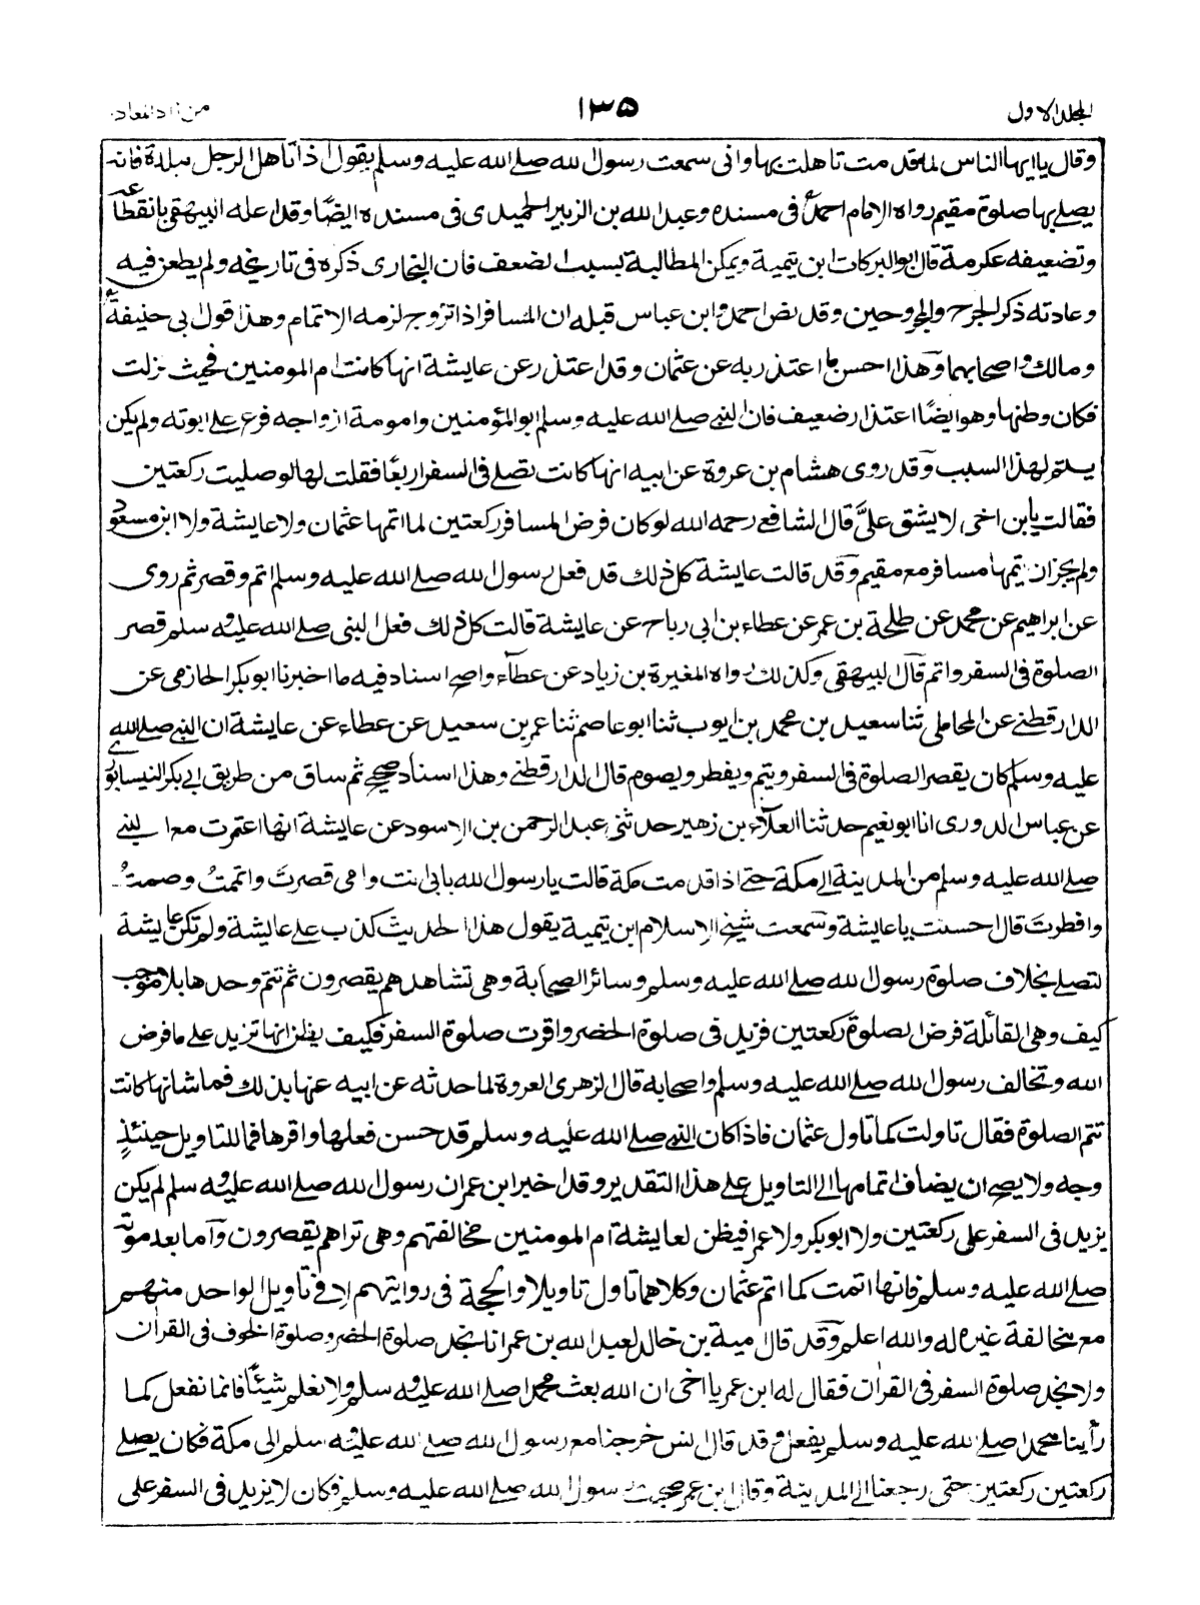 المجلد الاول
۱۳۵
من زاد المعاد
وقال يا ايها الناس لما قدمت تاهلت بها وانى سمعت رسول الله صلى الله عليه وسلم يقول اذا تاهل الرجل ببلدة فانه
يصلى بها صلوة مقيم رواه الامام احمد فى مسنده وعبد الله بن الزبير الحميدى فى مسنده ايضًا وقد اعله البيهقى بانقطاعه
وتضعيفه عكرمة قال ابو البركات ابن تيمية ويمكن المطالبة بسبب الضعف فان البخارى ذكره فى تاريخه ولم يطعن فيه
وعادته ذكر الجرح والمجروحين وقد نص احمد وابن عباس قبله ان المسافر اذا تزوج لزمه الاتمام وهذا قول ابى حنيفة
ومالك واصحابهما وهذا احسن ما اعتذر به عن عثمان وقد اعتذر عن عايشة انها كانت ام المومنين فحيث نزلت
فكان وطنها وهو ايضًا اعتذار ضعيف فان النبى صلى الله عليه وسلم ابو المؤمنين وامومة ازواجه فرع على ابوته ولم يكن
يتم لهذا السبب وقد روى هشام بن عروة عن ابيه انها كانت تصلى فى السفر اربعًا فقلت لها لو صليت ركعتين
فقالت يا بن اخى لا يشق علىَّ قال الشافعى رحمه الله لو كان فرض المسافر ركعتين لما اتمها عثمان ولا عايشة ولا ابن مسعود
ولم يجز ان يتمها مسافر مع مقيم وقد قالت عايشة كل ذلك قد فعل رسول الله صلى الله عليه وسلم اتم وقصر ثم روى
عن ابراهيم عن محمد عن طلحة بن عمر عن عطاء بن ابى رباح عن عايشة قالت كل ذلك فعل النبى صلى الله عليه وسلم قصر
الصلوة فى السفر واتم قال البيهقى وكذلك رواه المغيرة بن زياد عن عطاء واصح اسناد فيه ما اخبرنا ابو بكر الحازمى عن
الدارقطنى عن المحاملى ثنا سعيد بن محمد بن ايوب ثنا ابو عاصم ثنا عمر بن سعيد عن عطاء عن عايشة ان النبى صلى الله
عليه وسلم كان يقصر الصلوة فى السفر ويتم ويفطر ويصوم قال الدارقطنى وهذا اسناد صحيح ثم ساق من طريق ابى بكر النيسابورى
عن عباس الدورى انا ابو نعيم حدثنا العلاء بن زهير حدثنى عبد الرحمن بن الاسود عن عايشة انها اعتمرت مع النبى
صلى الله عليه وسلم من المدينة الى مكة حتى اذا قدمت مكة قالت يا رسول الله بابى انت وامى قصرتَ واتممتُ وصمتُ
وافطرتَ قال احسنت يا عايشة وسمعت شيخ الاسلام ابن تيمية يقول هذا الحديث كذب على عايشة ولم تكن عايشة
لتصلى بخلاف صلوة رسول الله صلى الله عليه وسلم وسائر الصحابة وهى تشاهدهم يقصرون ثم تتم وحدها بلا موجب
كيف وهى القائلة فرض الصلوة ركعتين فزيد فى صلوة الحضر واقرت صلوة السفر فكيف يظن انها تزيد على ما فرض
الله وتخالف رسول الله صلى الله عليه وسلم واصحابه قال الزهرى لعروة لما حدثه عن ابيه عنها بذلك فما شانها كانت
تتم الصلوة فقال تاولت كما تاول عثمان فاذا كان النبى صلى الله عليه وسلم قد حسن فعلها واقرها فما للتاويل حينئذٍ
وجه ولا يصح ان يضاف اتمامها الى التاويل على هذا التقدير وقد اخبر ابن عمر ان رسول الله صلى الله عليه وسلم لم يكن
يزيد فى السفر على ركعتين ولا ابو بكر ولا عمر افيظن لعايشة ام المومنين مخالفتهم وهى تراهم يقصرون واما بعد موته
صلى الله عليه وسلم فانها اتمت كما اتم عثمان وكلاهما تاول تاويلا والحجة فى روايتهم لا فى تاويل الواحد منهم
مع مخالفة غيره له والله اعلم وقد قال امية بن خالد لعبد الله بن عمر انا نجد صلوة الحضر وصلوة الخوف فى القرآن
ولا نجد صلوة السفر فى القرآن فقال له ابن عمر يا اخى ان الله بعث محمدا صلى الله عليه وسلم ولا نعلم شيئًا فانما نفعل كما
رأينا محمدا صلى الله عليه وسلم يفعل وقد قال انس خرجنا مع رسول الله صلى الله عليه وسلم الى مكة فكان يصلى
ركعتين ركعتين حتى رجعنا الى المدينة وقال ابن عمر صحبت رسول الله صلى الله عليه وسلم فكان لا يزيد فى السفر على